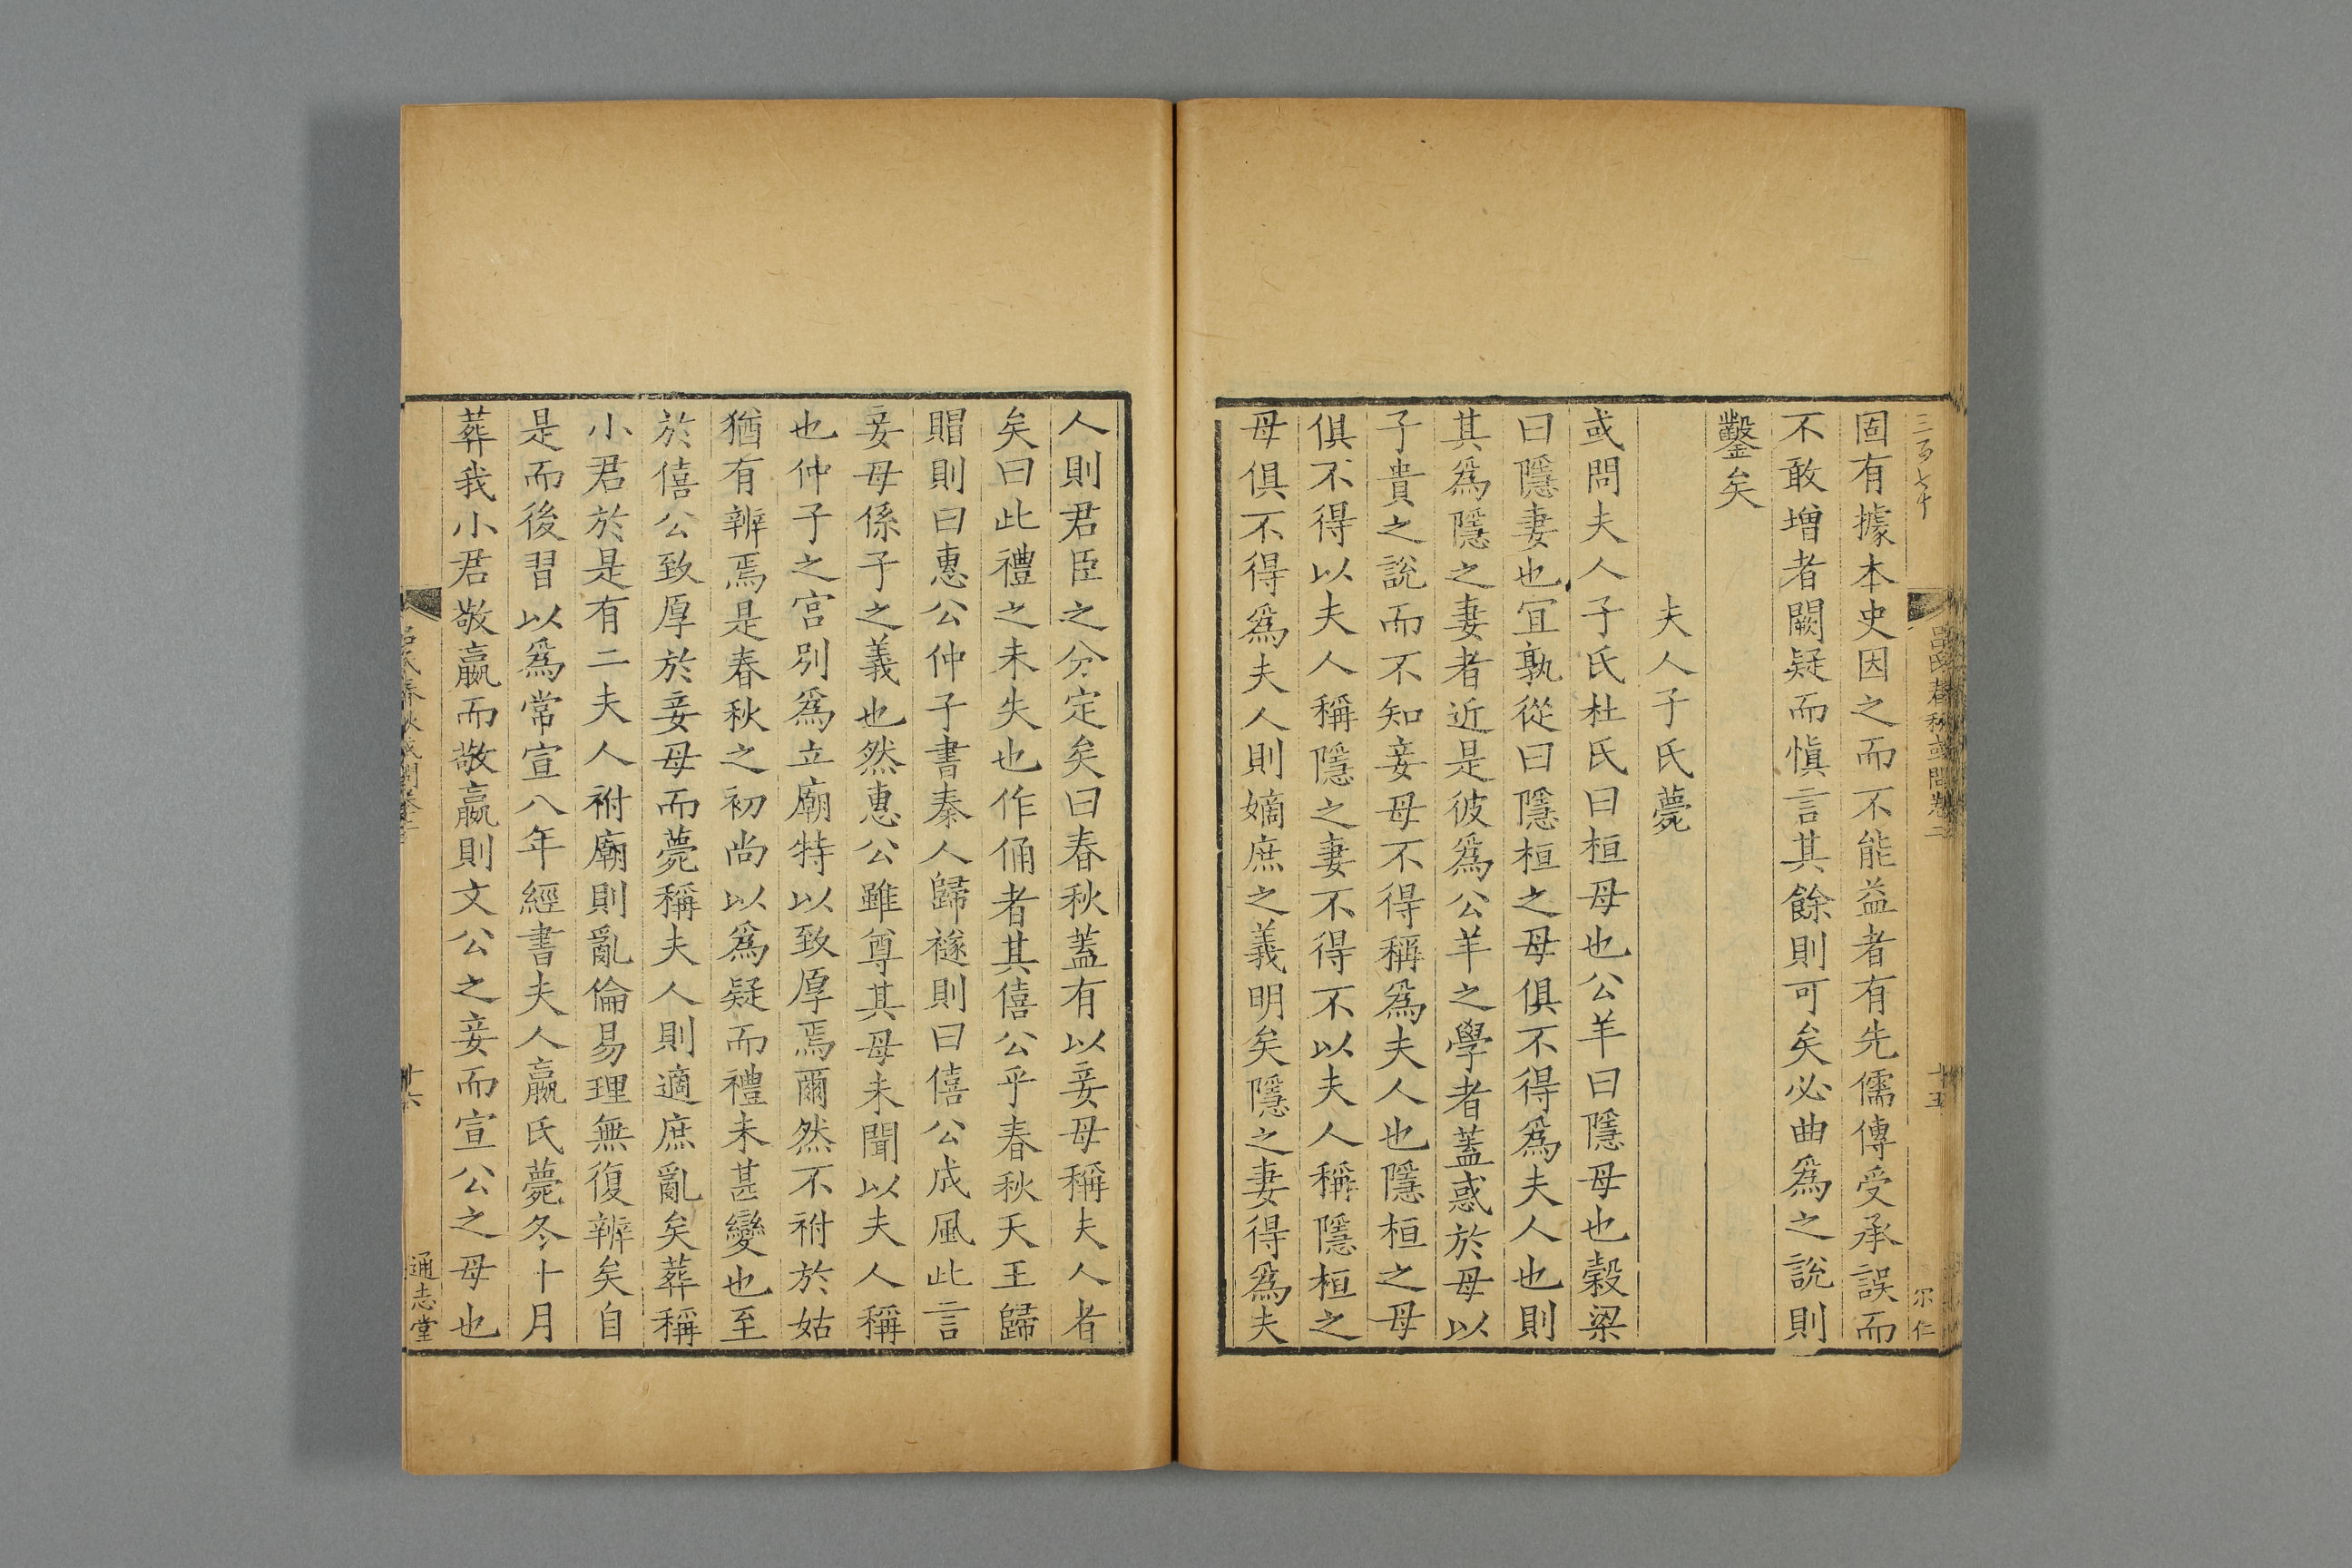 三百七十
呂氏春秋或問卷二
十五
尔仁
固有據本史因之而不能益者有先儒傳受承誤而
不敢增者闕疑而慎言其餘則可矣必曲爲之說則
鑿矣
夫人子氏薨
或問夫人子氏杜氏曰桓母也公羊曰隱母也穀梁
曰隱妻也宜孰從曰隱桓之母俱不得爲夫人也則
其爲隱之妻者近是彼爲公羊之學者蓋惑於母以
子貴之說而不知妾母不得稱爲夫人也隱桓之母
俱不得以夫人稱隱之妻不得不以夫人稱隱桓之
母俱不得爲夫人則嫡庶之義明矣隱之妻得爲夫
人則君臣之分定矣曰春秋蓋有以妾母稱夫人者
矣曰此禮之未失也作俑者其僖公乎春秋天王歸
賵則曰惠公仲子書秦人歸襚則曰僖公成風此言
妾母係子之義也然惠公雖尊其母未聞以夫人稱
也仲子之宫別爲立廟特以致厚焉爾然不祔於姑
猶有辨焉是春秋之初尚以爲疑而禮未甚變也至
於僖公致厚於妾母而薨稱夫人則適庶亂矣葬稱
小君於是有二夫人祔廟則亂倫易理無復辨矣自
是而後習以爲常宣八年經書夫人嬴氏薨冬十月
葬我小君敬嬴而敬嬴則文公之妾而宣公之母也
呂氏春秋或問卷二
十六
通志堂